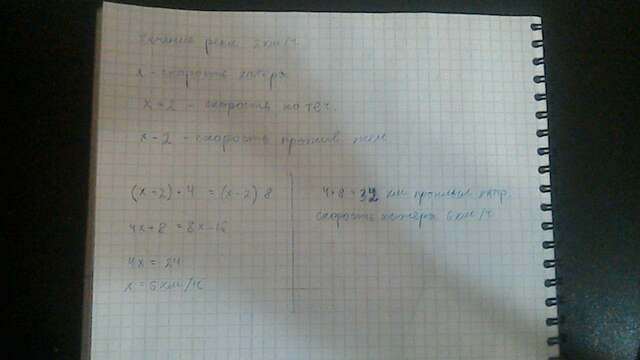 течение реки 2км/ч
x - скорость катера
x + 2 - скорость по теч.
x - 2 - скорость против теч
(x + 2) · 4 = (x - 2) 8
4x + 8 = 8x - 16
4x = 24
x = 6 км/ч
4 · 8 = 32 км проплыл катр.
скорость катера 6 км/ч